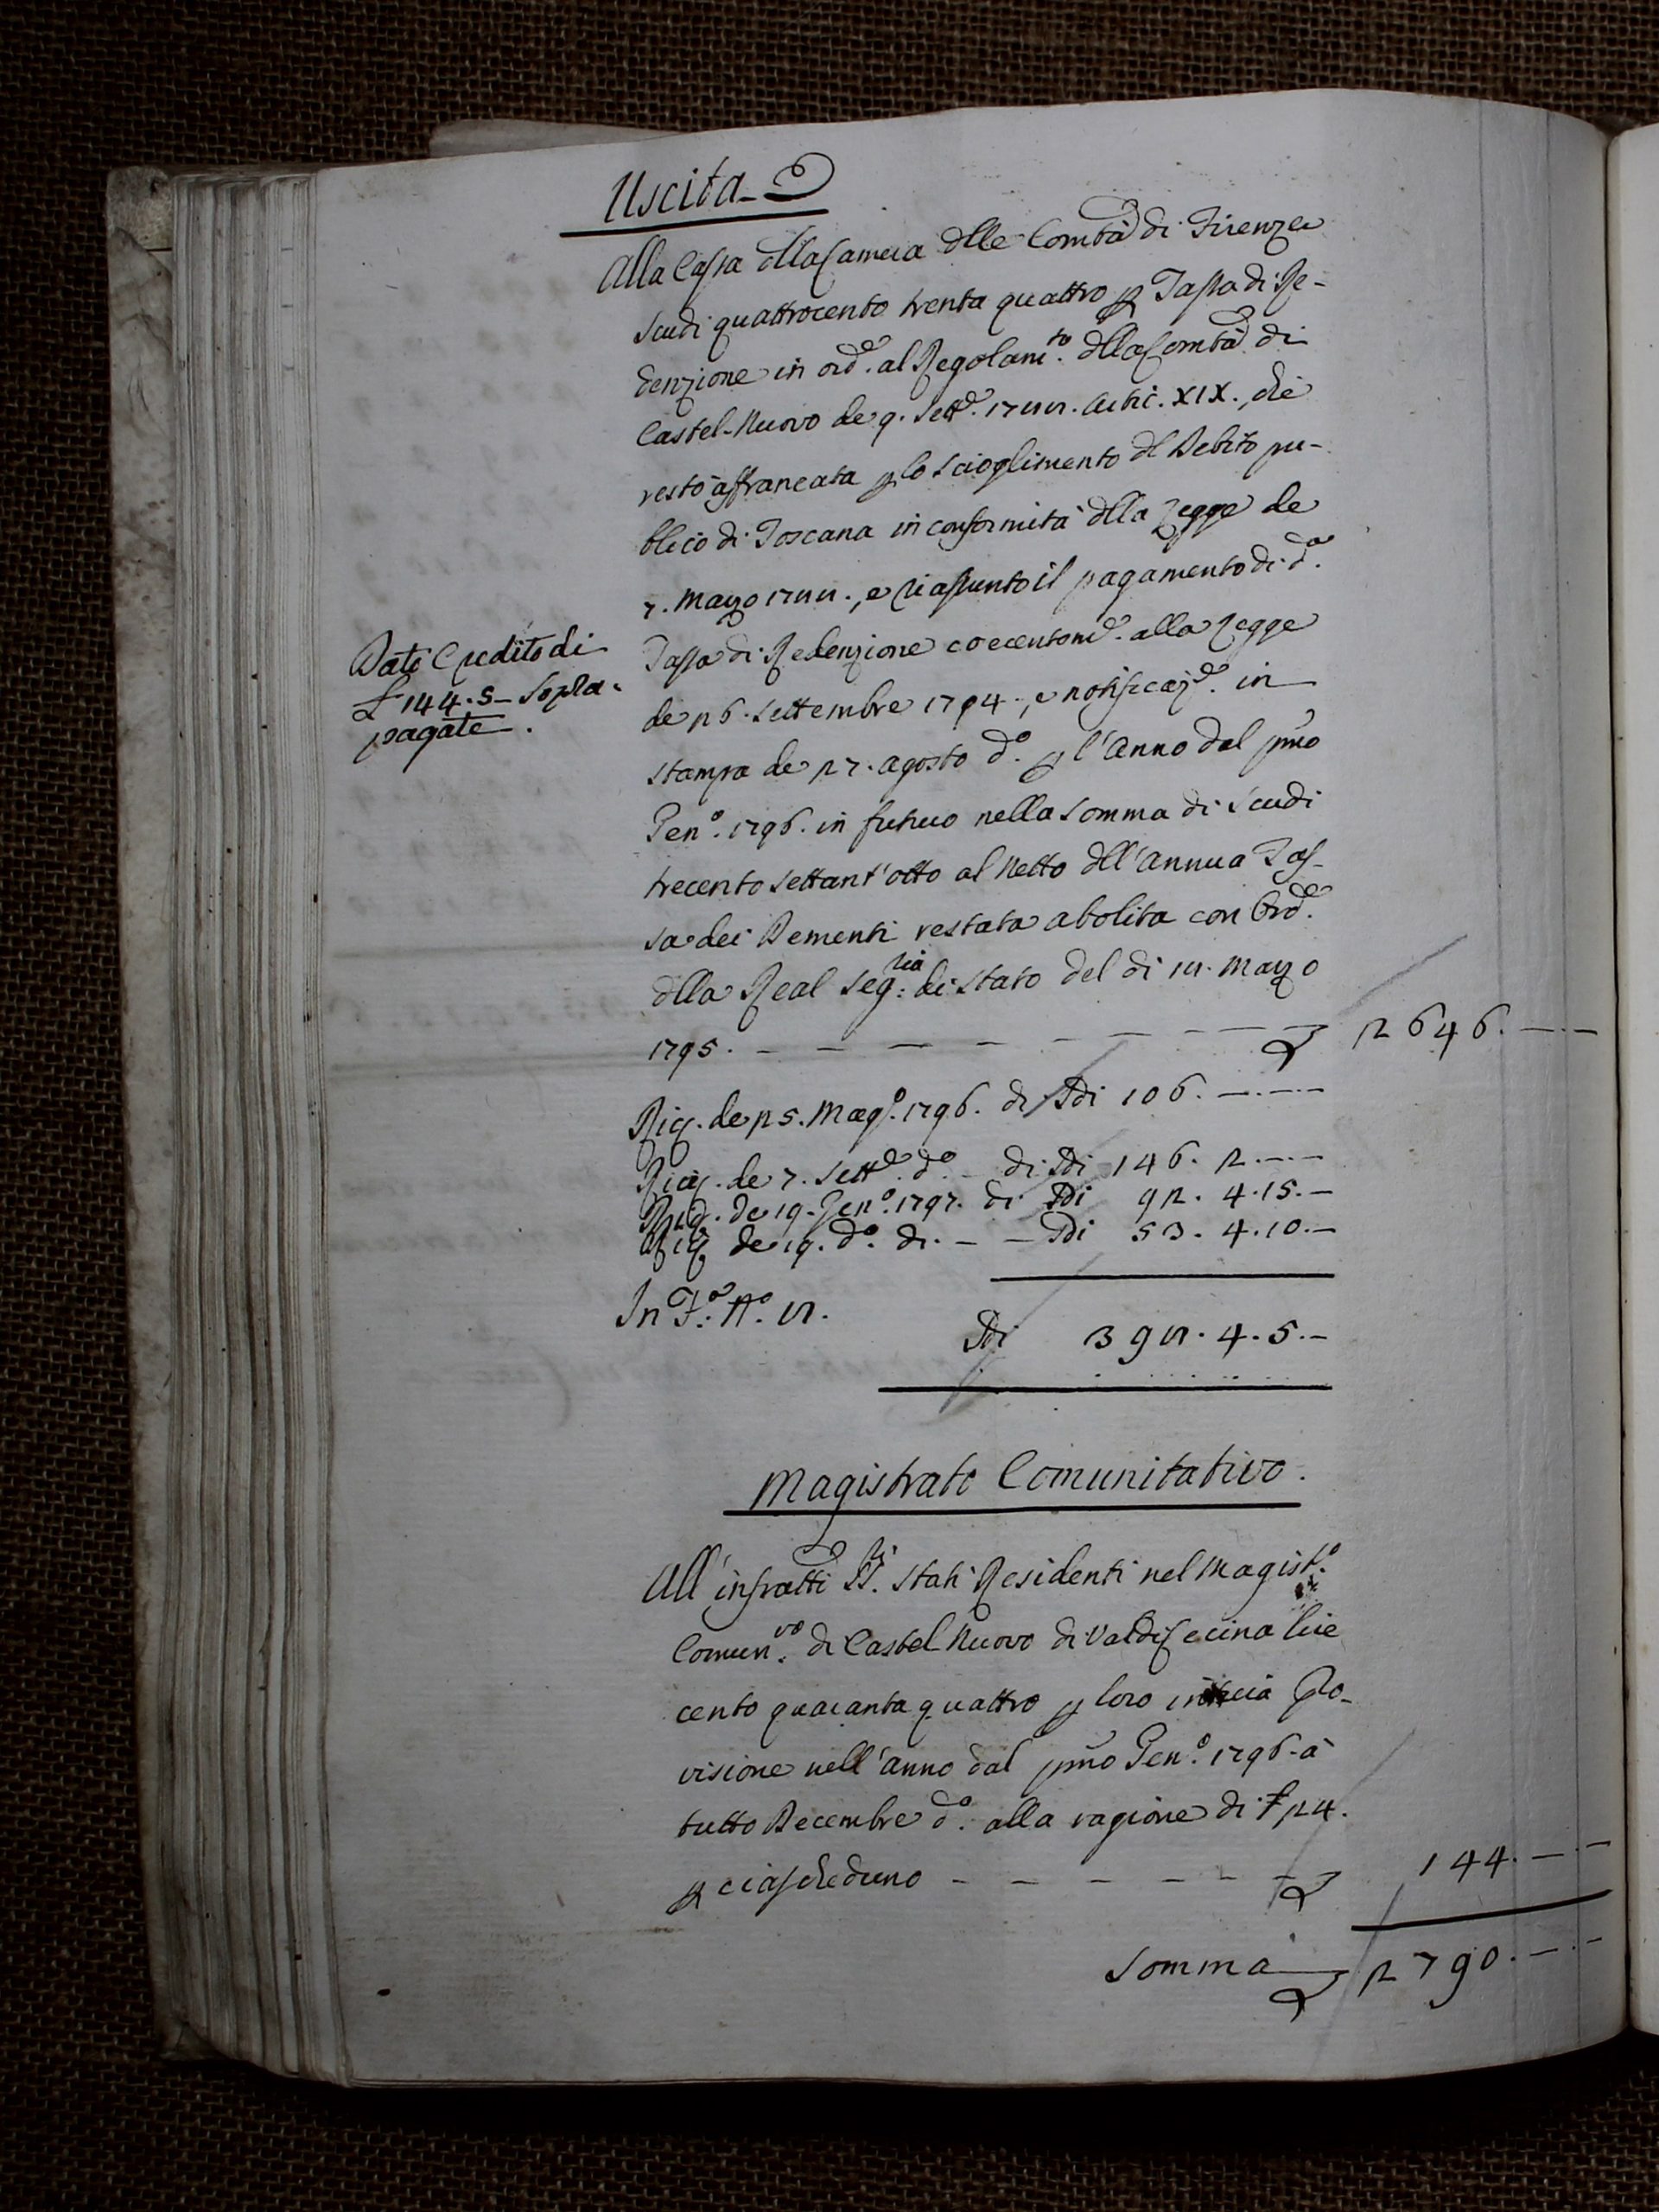 Uscita
Alla Cassa dlla Camera dlle Comtà di Firenze
scudi quattrocento trenta quattro p Tassa di Re-
denzione in ord.e al Regolam.to dlla Comtà di
Castel-Nuovo de 9. Sett.e 1788. Artic. XIX., che
restò affrancata p lo scioglimento dl Debito pu-
blico di Toscana in conformità dlla Legge de
7. Marzo 1788., e riassunto il pagamento di d.a
Dato Credito di
£ 144.5- sopra-
pagate.
Tassa di Redenzione coerentem.e alla Legge
de 26. Settembre 1794., e notificaz.e in
stampa de 27. agosto d.o p l'Anno dal pmo
Gen.o 1796. in futuro nella somma di Scudi
trecento settant'otto al netto dll'annua Tas-
sa dei Dementi restata abolita con Ord.e
dlla Real Seg.ria di Stato del dì 18. Marzo
1795. - - - - - - - £ 2646. -.-
Ric. de 25. Mag.o 1796. di Sdi 106. -.-.-
Ric. de 7. Sett.e d.o - di Sdi 146. 2.-.-
Ric. de 19. Gen.o 1797. di Sdi 92. 4.15.-
Ric. de 19. d.o di. - - Sdi 53. 4.10.-
In F.a N.o 8.
Sdi 398. 4. 5.-
Magistrato Comunitativo.
All'infratti SS.ri stati Residenti nel Magist.o
Comun.vo di Castel Nuovo di Val di Cecina lire
cento quaranta quattro p loro intiera Pro-
visione nell'anno dal pmo Gen.o 1796. a
tutto Decembre d.o alla ragione di £ 24.
p ciascheduno - - - - - - £ 144. -.-
Somma £ 2790. -.-